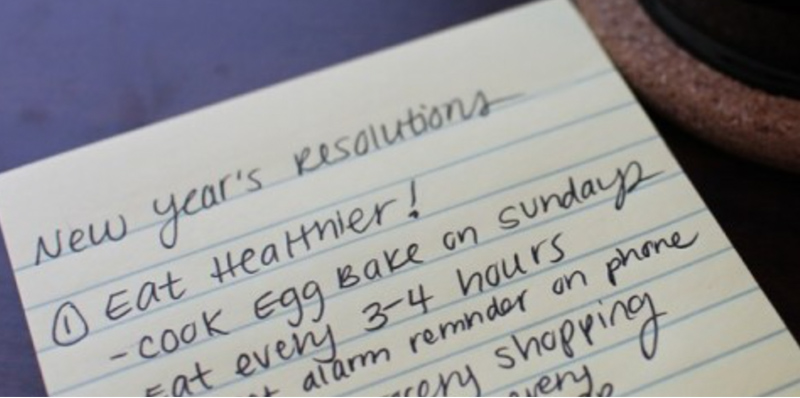 New year's resolutions
① Eat Healthier!
- cook Egg Bake on sundays
Eat every 3-4 hours
alarm remnder on phone
shopping